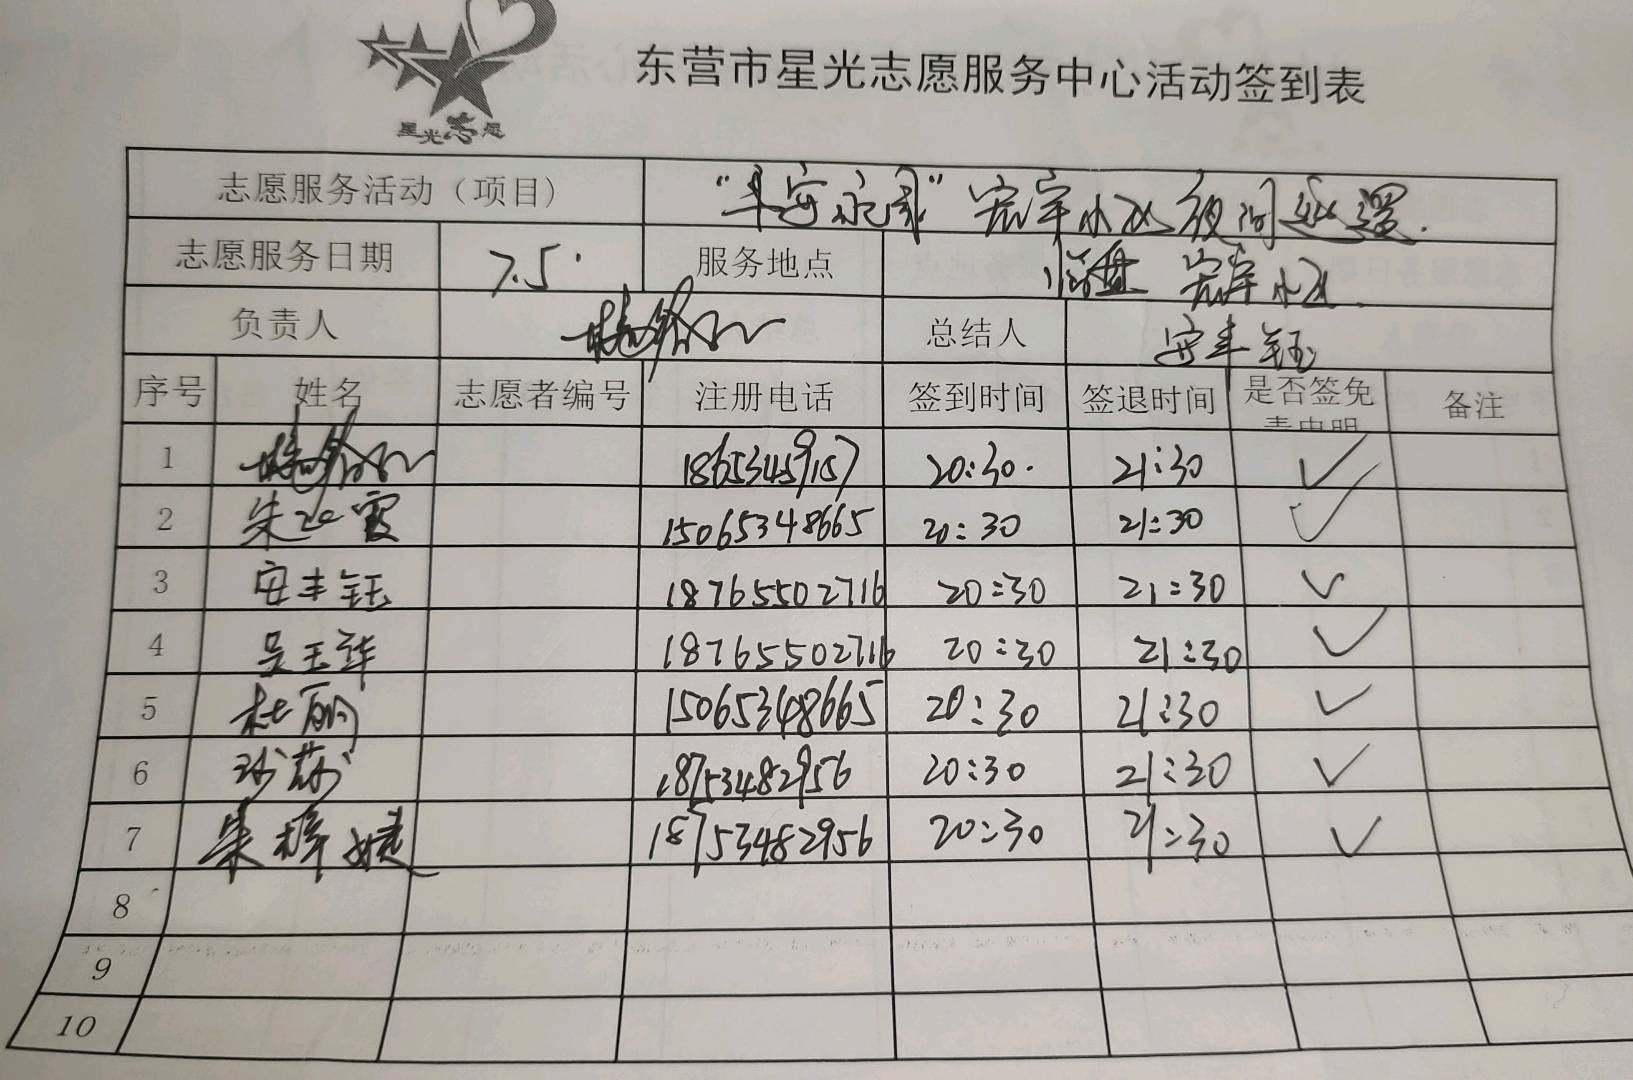 星光志愿
东营市星光志愿服务中心活动签到表
志愿服务活动（项目） “平安永安” 宏宇小区夜间巡逻.
志愿服务日期 7.5. 服务地点 临盘 宏宇小区.
负责人 总结人 安丰钰
序号 姓名 志愿者编号 注册电话 签到时间 签退时间 是否签免 备注
责申明
1 18653459157 20:30. 21:30 ✓
2 朱迎霞 15065348665 20:30 21:30 ✓
3 安丰钰 18765502716 20:30 21:30 ✓
4 吴玉萍 18765502716 20:30 21:30 ✓
5 杜丽 15065348665 20:30 21:30 ✓
6 18753482956 20:30 21:30 ✓
7 朱梓婕 18753482956 20:30 21:30 ✓
8
9
10